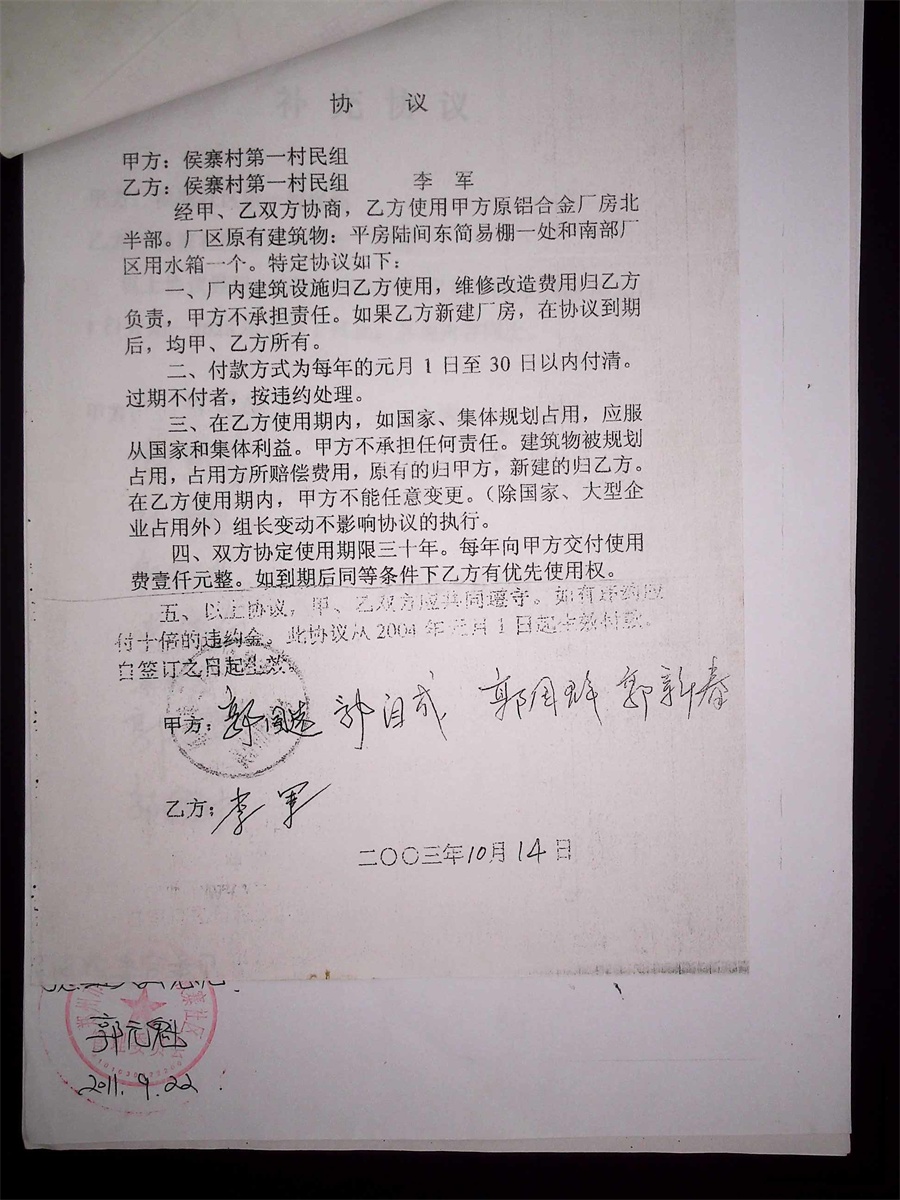 协 议
甲方：侯寨村第一村民组
乙方：侯寨村第一村民组 李 军
经甲、乙双方协商，乙方使用甲方原铝合金厂房北
半部。厂区原有建筑物：平房陆间东简易棚一处和南部厂
区用水箱一个。特定协议如下：
一、厂内建筑设施归乙方使用，维修改造费用归乙方
负责，甲方不承担责任。如果乙方新建厂房，在协议到期
后，均甲、乙方所有。
二、付款方式为每年的元月 1 日至 30 日以内付清。
过期不付者，按违约处理。
三、在乙方使用期内，如国家、集体规划占用，应服
从国家和集体利益。甲方不承担任何责任。建筑物被规划
占用，占用方所赔偿费用，原有的归甲方，新建的归乙方。
在乙方使用期内，甲方不能任意变更。（除国家、大型企
业占用外）组长变动不影响协议的执行。
四、双方协定使用期限三十年。每年向甲方交付使用
费壹仟元整。如到期后同等条件下乙方有优先使用权。
五、以上协议，甲、乙双方应共同遵守。如有违约应
付十倍的违约金。此协议从 2004 年元月 1 日起生效付款。
自签订之日起生效。
甲方： 郭自成 郭新春
乙方：李军
二〇〇三年10月14日
郭元魁
2011.9.22